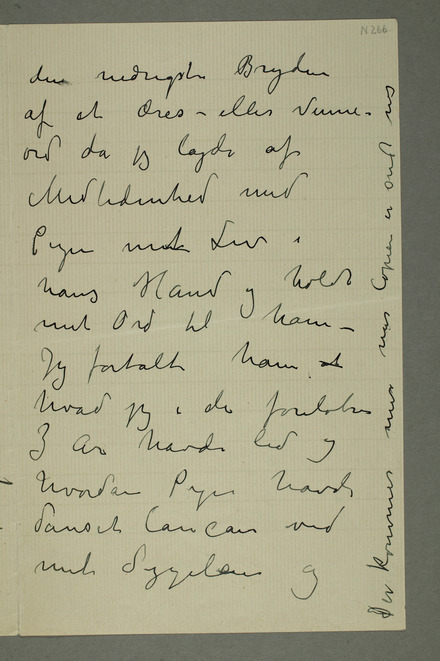 N 266
den nedrigste Bryden
af et Æres – eller Venne-
ord da jeg lagde af
Medlidenhed med
Pigen mit Liv i
hans Haand og holdt
mit Ord til ham –
Jeg fortalte ham at
hvad jeg i de forløbne
3 Aar havde lid og
hvordan Pigen havde
danset Cancan ved
mit Sygeleie og
Der kommer mer naar Copien er